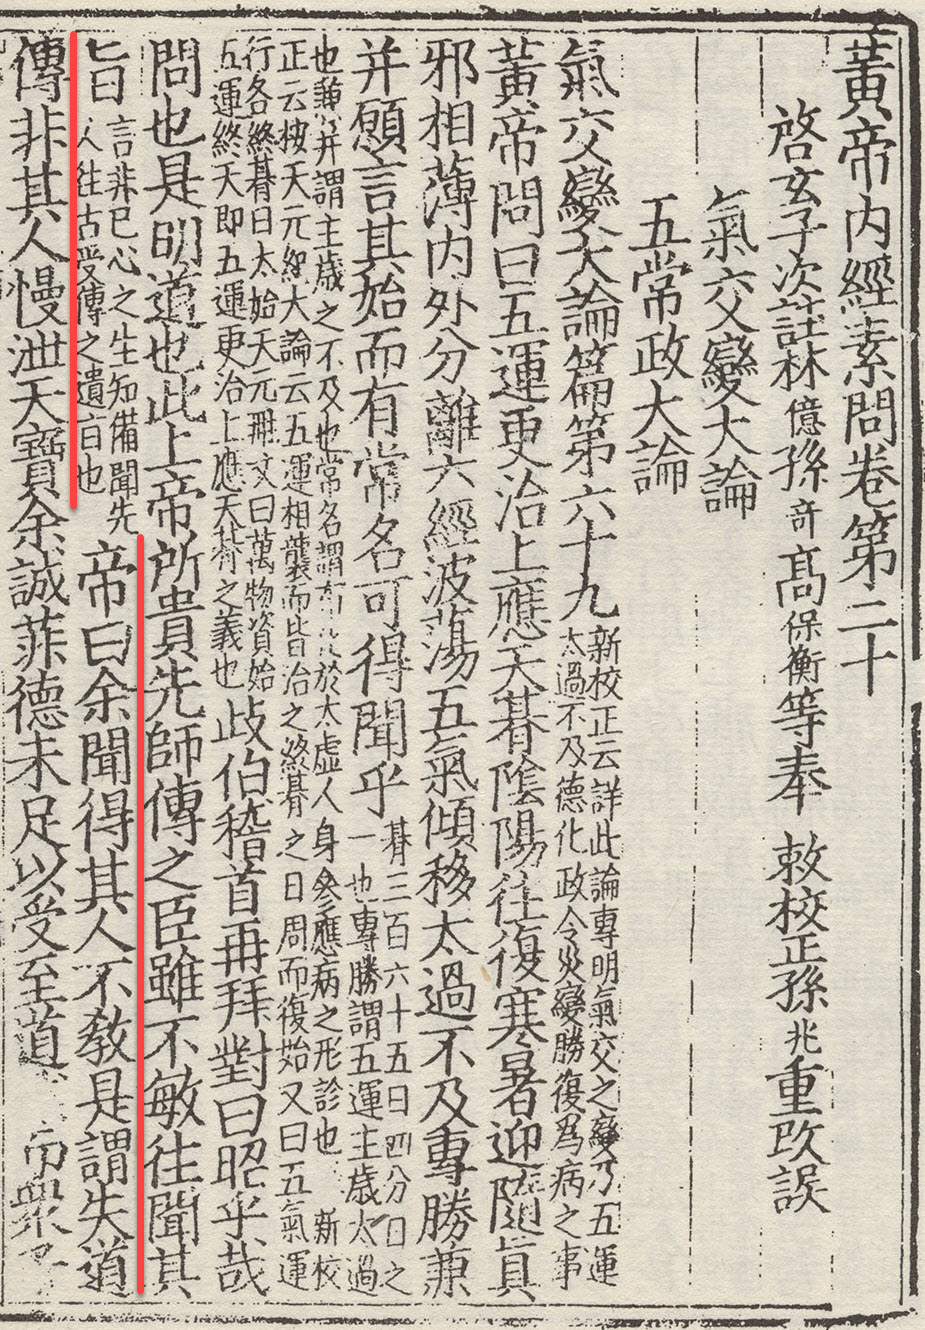 黃帝内經素問卷第二十
啓玄子次註林億孫竒髙保衡等奉 敕校正孫兆重改誤
氣交變大論
五常政大論
氣交變大論篇第六十九
新校正云詳此論專明氣交之變乃五運
太過不及德化政令災變勝復爲病之事
黃帝問曰五運更治上應天朞陰陽往復寒暑迎隨眞
邪相薄内外分離六經波蕩五氣傾移太過不及專勝兼
并願言其始而有常名可得聞乎
朞三百六十五日四分日之
一也專勝謂五運主歲太過
也兼并謂主歲之不及也常名謂布於太虚人身參應病之形診也 新校
正云按天元紀大論云五運相襲而皆治之終朞之日周而復始又曰五氣運
行各終朞日太始天元冊文曰萬物資始
五運終天即五運更治上應天朞之義也
岐伯稽首再拜對曰昭乎哉
問也是明道也此上帝所貴先師傳之臣雖不敏往聞其
旨
言非已心之生知備聞先
人往古受傳之遺旨也
帝曰余聞得其人不教是謂失道
傳非其人慢泄天寶余誠菲德未足以受至道 衆